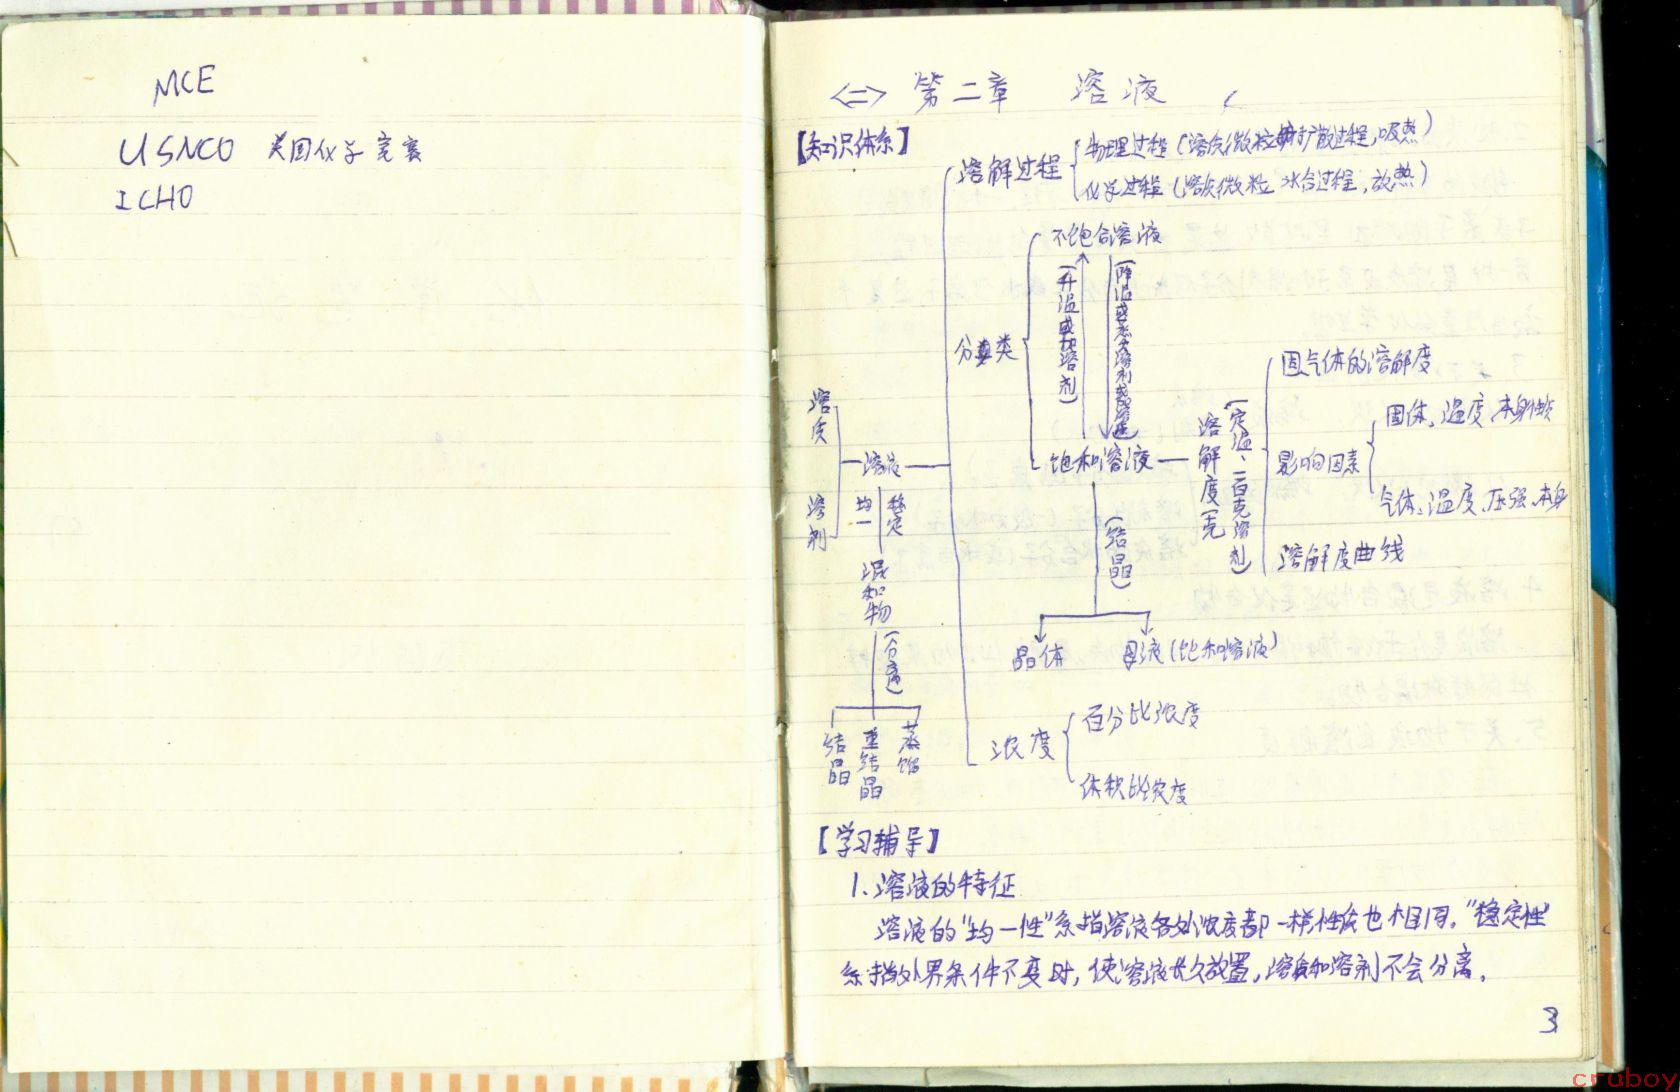 MCE
USNCO 美国化学竞赛
ICHO
<二> 第二章 溶液
【知识体系】
溶解过程
物理过程(溶质微粒扩散过程,吸热)
化学过程(溶质微粒水合过程,放热)
分类
不饱合溶液
(升温或加溶剂)
(降温或蒸发溶剂或溶质)
饱和溶液
溶解度(克
一定温、一百克溶剂)
固气体的溶解度
影响因素
固体、温度、本身性质
气体、温度、压强、本身
溶解度曲线
(结晶)
晶体
母液(饱和溶液)
溶质
溶剂
溶液
均一
稳定
混和物
(分离)
结晶
重结晶
蒸馏
浓度
百分比浓度
体积比浓度
【学习辅导】
1.溶液的特征
溶液的“均一性”系指溶液各处浓度都一样性质也相同。“稳定性”
系指外界条件不变时,使溶液长久放置,溶质和溶剂不会分离。
3
cruboy